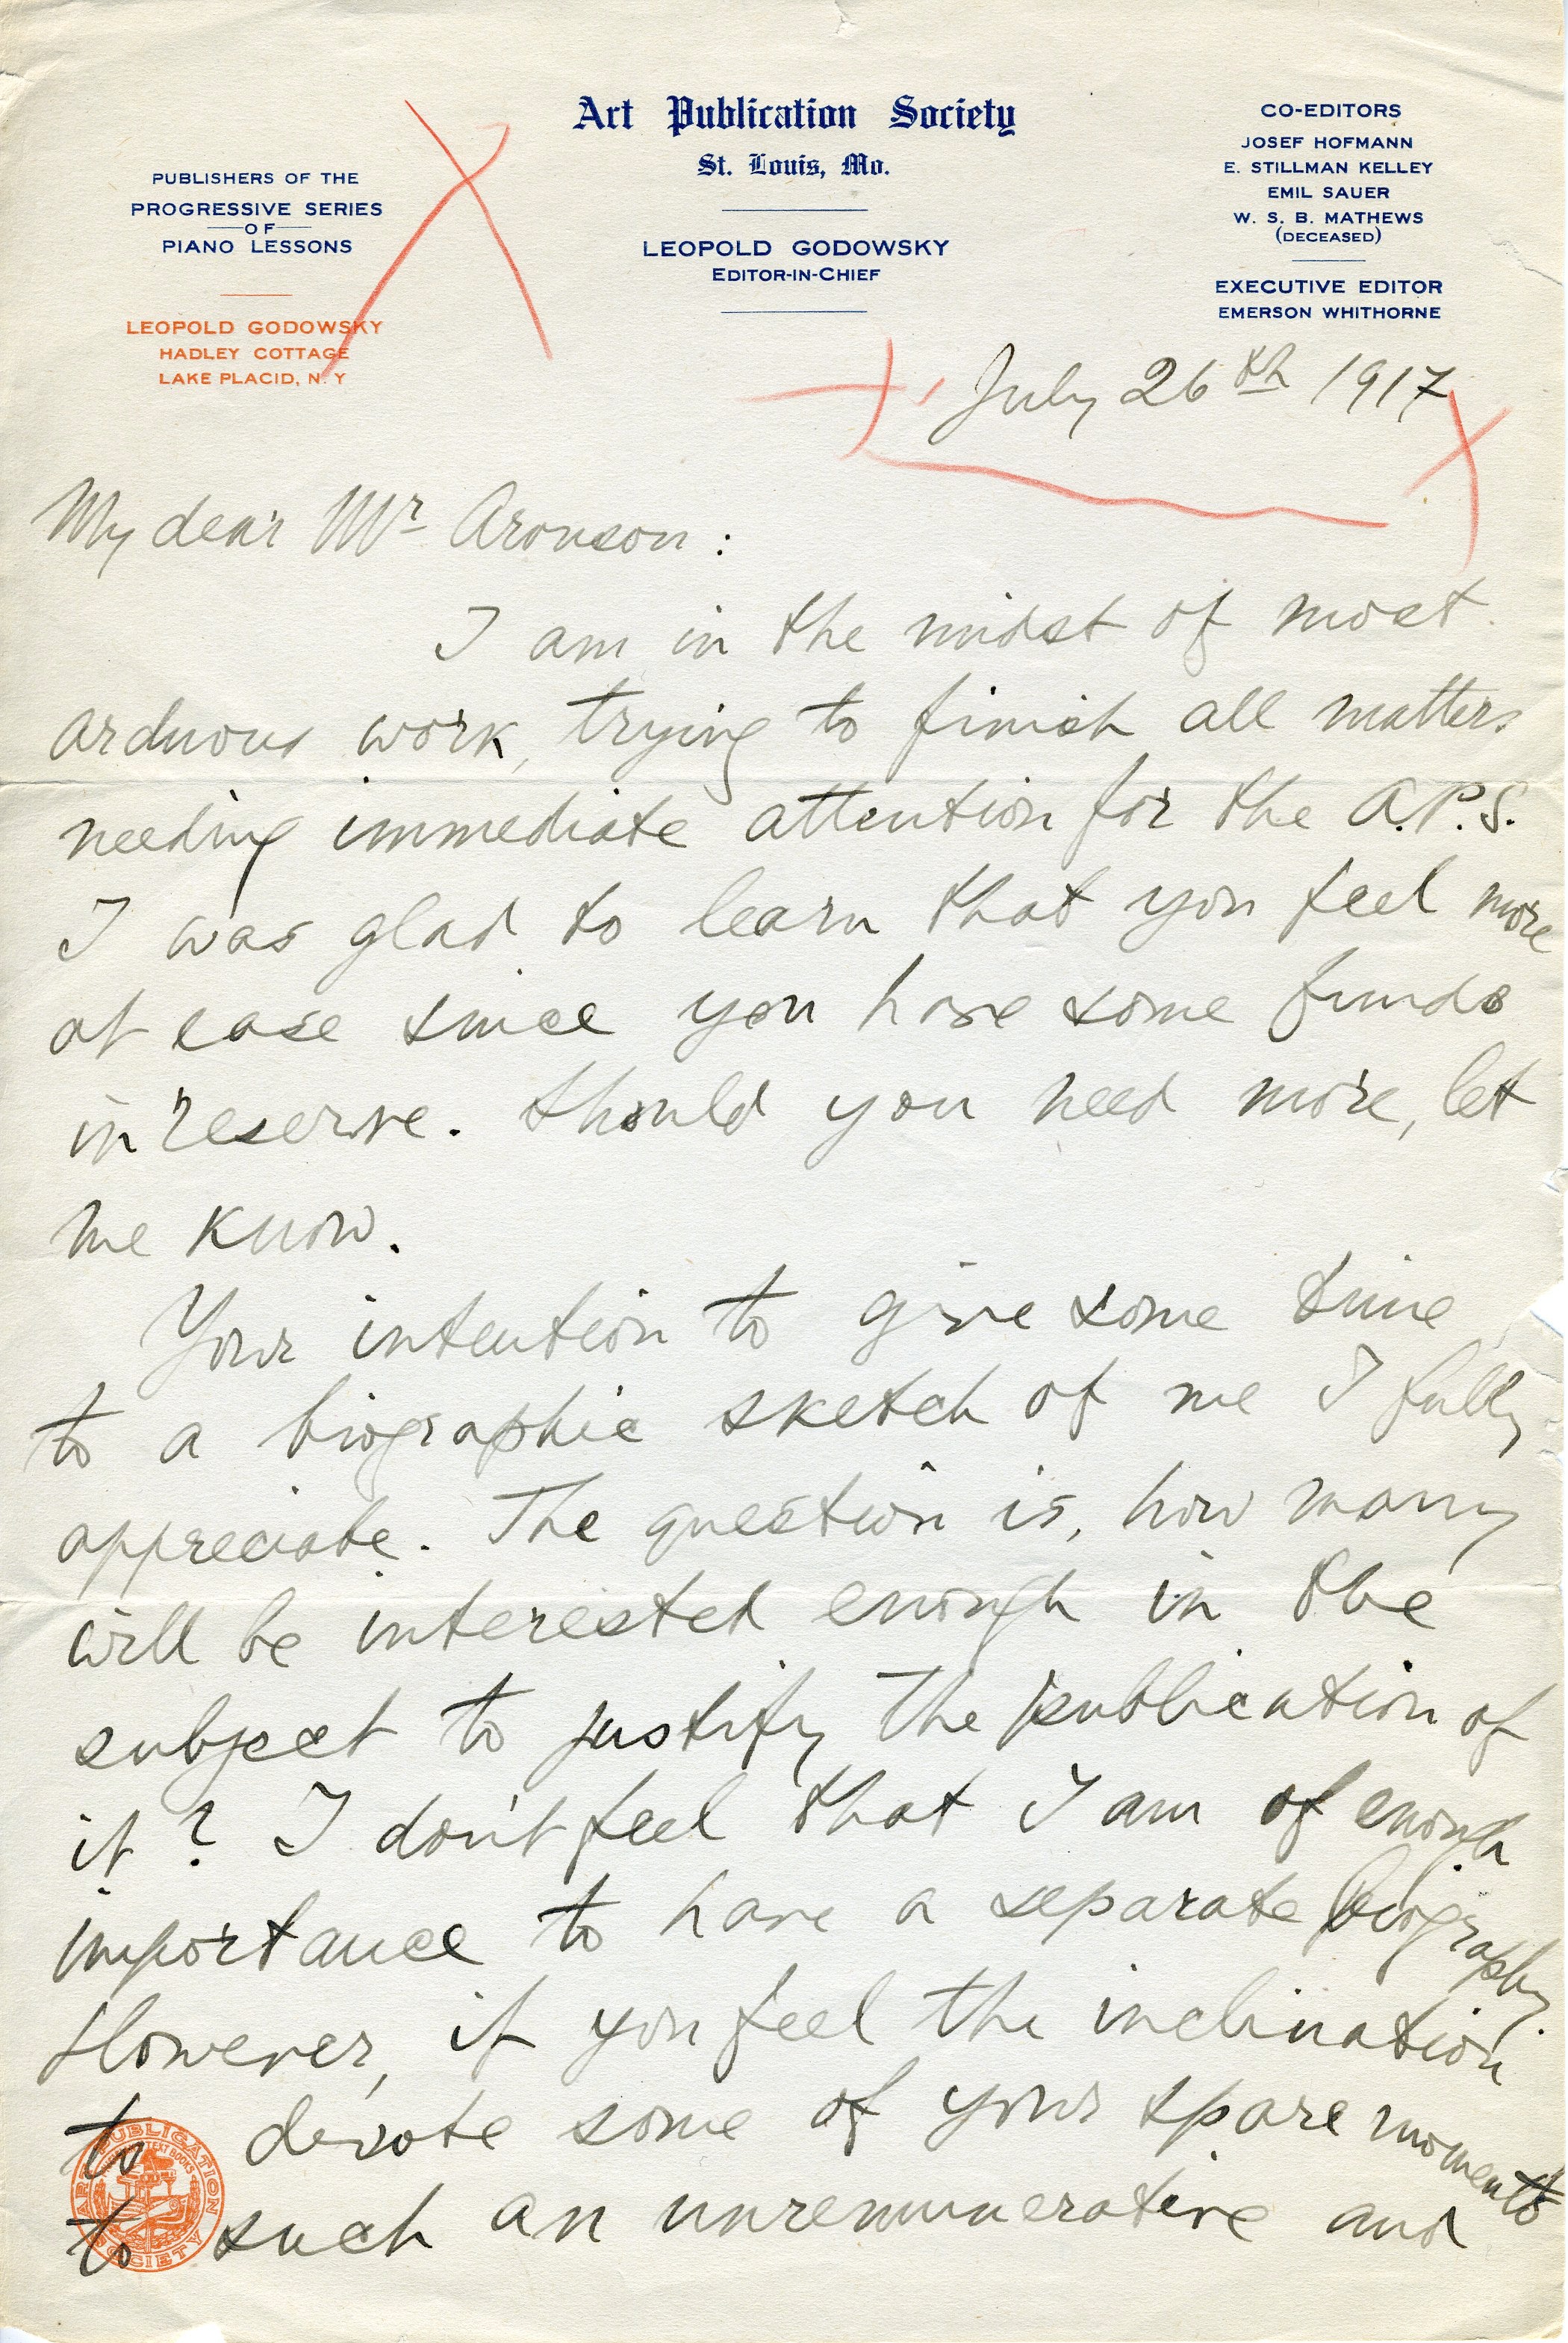 Art Publication Society
St. Louis, Mo.
LEOPOLD GODOWSKY
EDITOR-IN-CHIEF
PUBLISHERS OF THE
PROGRESSIVE SERIES
OF
PIANO LESSONS
LEOPOLD GODOWSKY
HADLEY COTTAGE
LAKE PLACID, N.Y
CO-EDITORS
JOSEF HOFMANN
E. STILLMAN KELLEY
EMIL SAUER
W. S. B. MATHEWS
(DECEASED)
EXECUTIVE EDITOR
EMERSON WHITHORNE
July 26th 1917
My dear Mr Aronson:
I am in the midst of most
arduous work, trying to finish all matters
needing immediate attention for the A.P.S.
I was glad to learn that you feel more
at ease since you have some funds
in reserve. Should you need more, let
me know.
Your intention to give some time
to a biographic sketch of me I fully
appreciate. The question is, how many
will be interested enough in the
subject to justify the publication of
it? I don't feel that I am of enough
importance to have a separate biography.
However, if you feel the inclination
to devote some of your spare moments
to such an unremunerative and
ART PUBLICATION SOCIETY